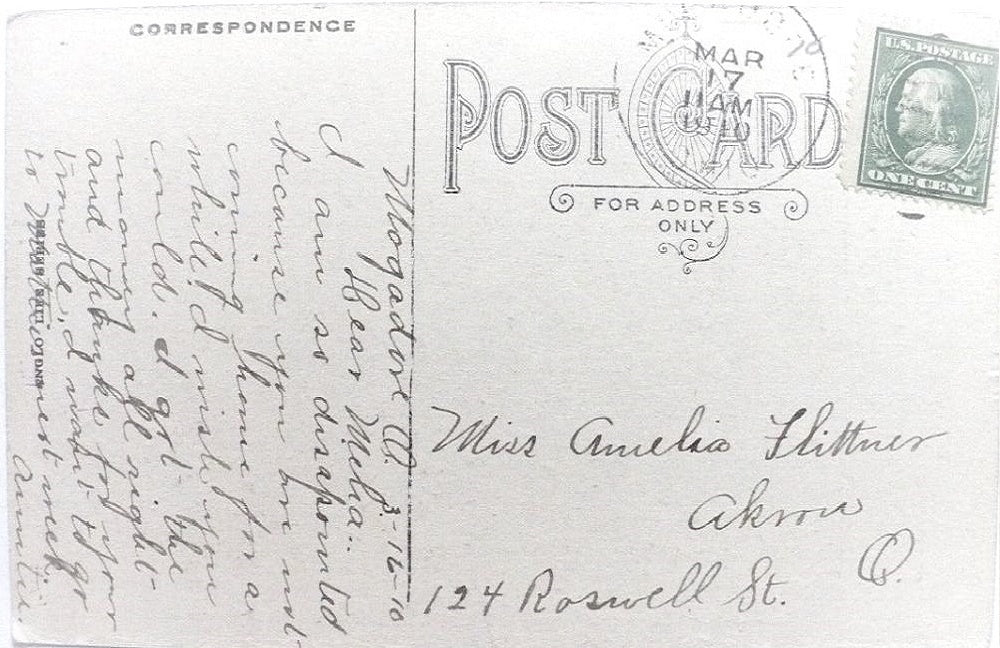 CORRESPONDENCE
POST CARD
FOR ADDRESS
ONLY
MAR
17
11 AM
1910
U.S. POSTAGE
ONE CENT
Mogadore O. 3-16-10
Dear Melia..
I am so disapointed
because you are not
coming home for a
while I wish you
could. I got the
money all right
and thanks for your
trouble, I want to go
to next week.
Miss Amelia Flittner
Akron
O.
124 Roswell St.